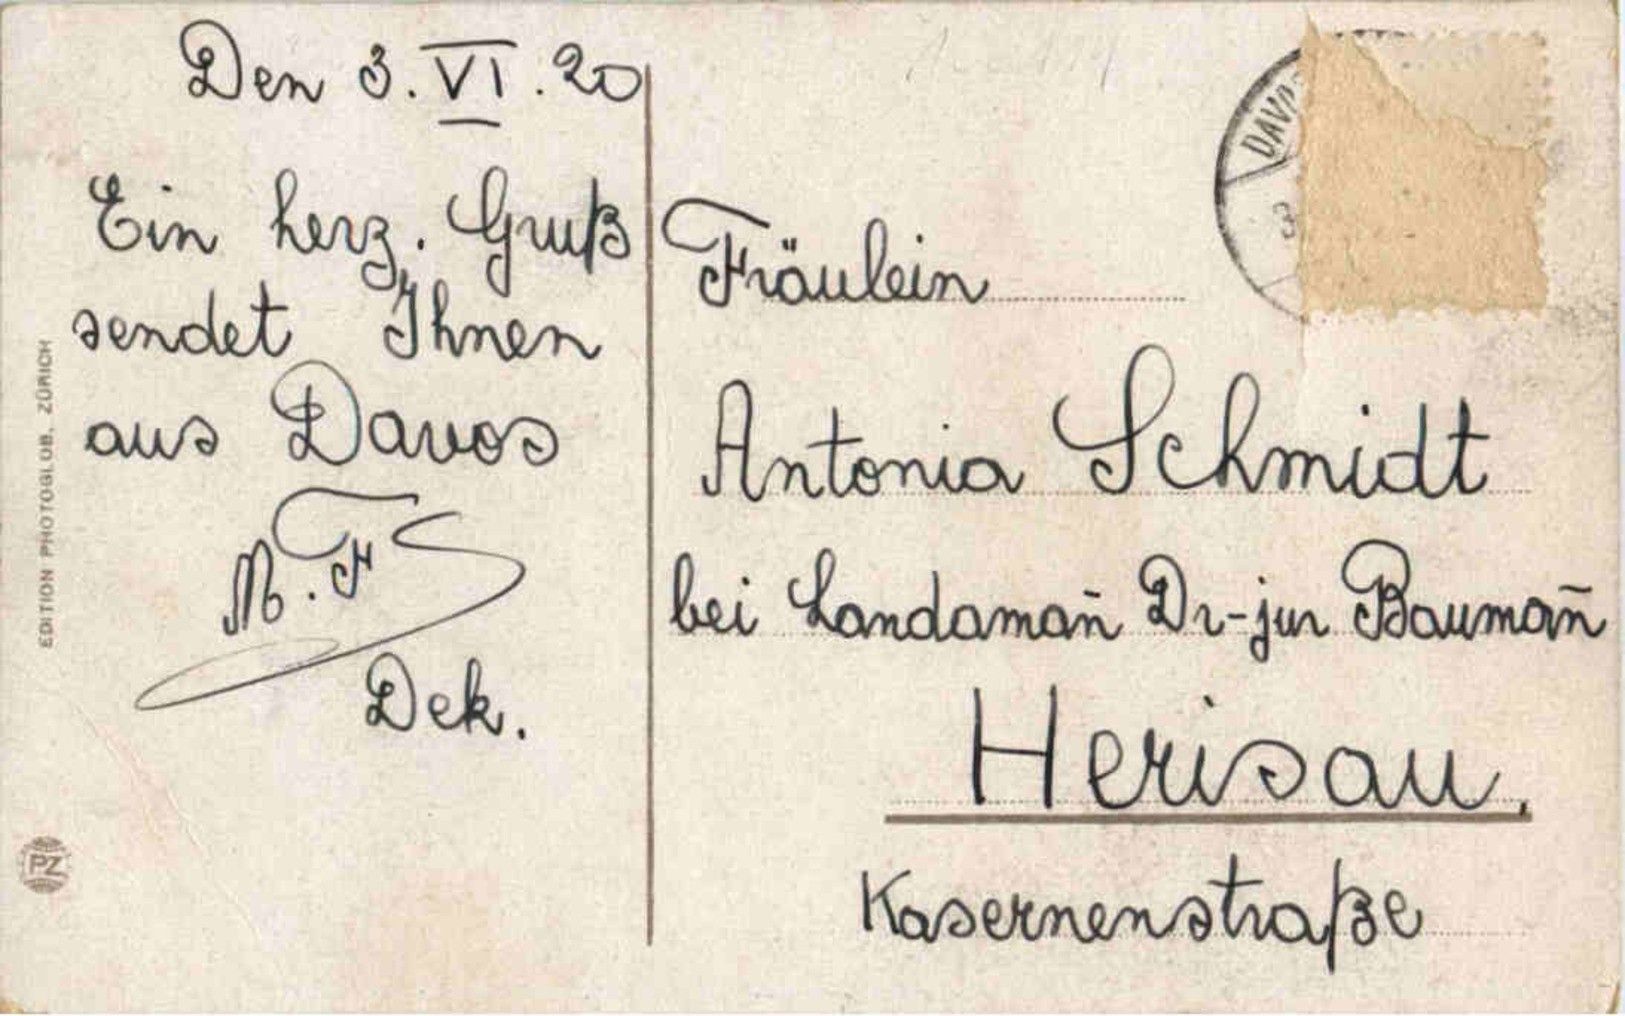 Den 3. VI. 20
Ein herz. Gruß
sendet Ihnen
aus Davos
M. F
Dek.
EDITION PHOTOGLOB, ZÜRICH
PZ
Fräulein
Antonia Schmidt
bei Landaman̄ Dr-jur Bauman̄
Herisau.
Kasernenstraße